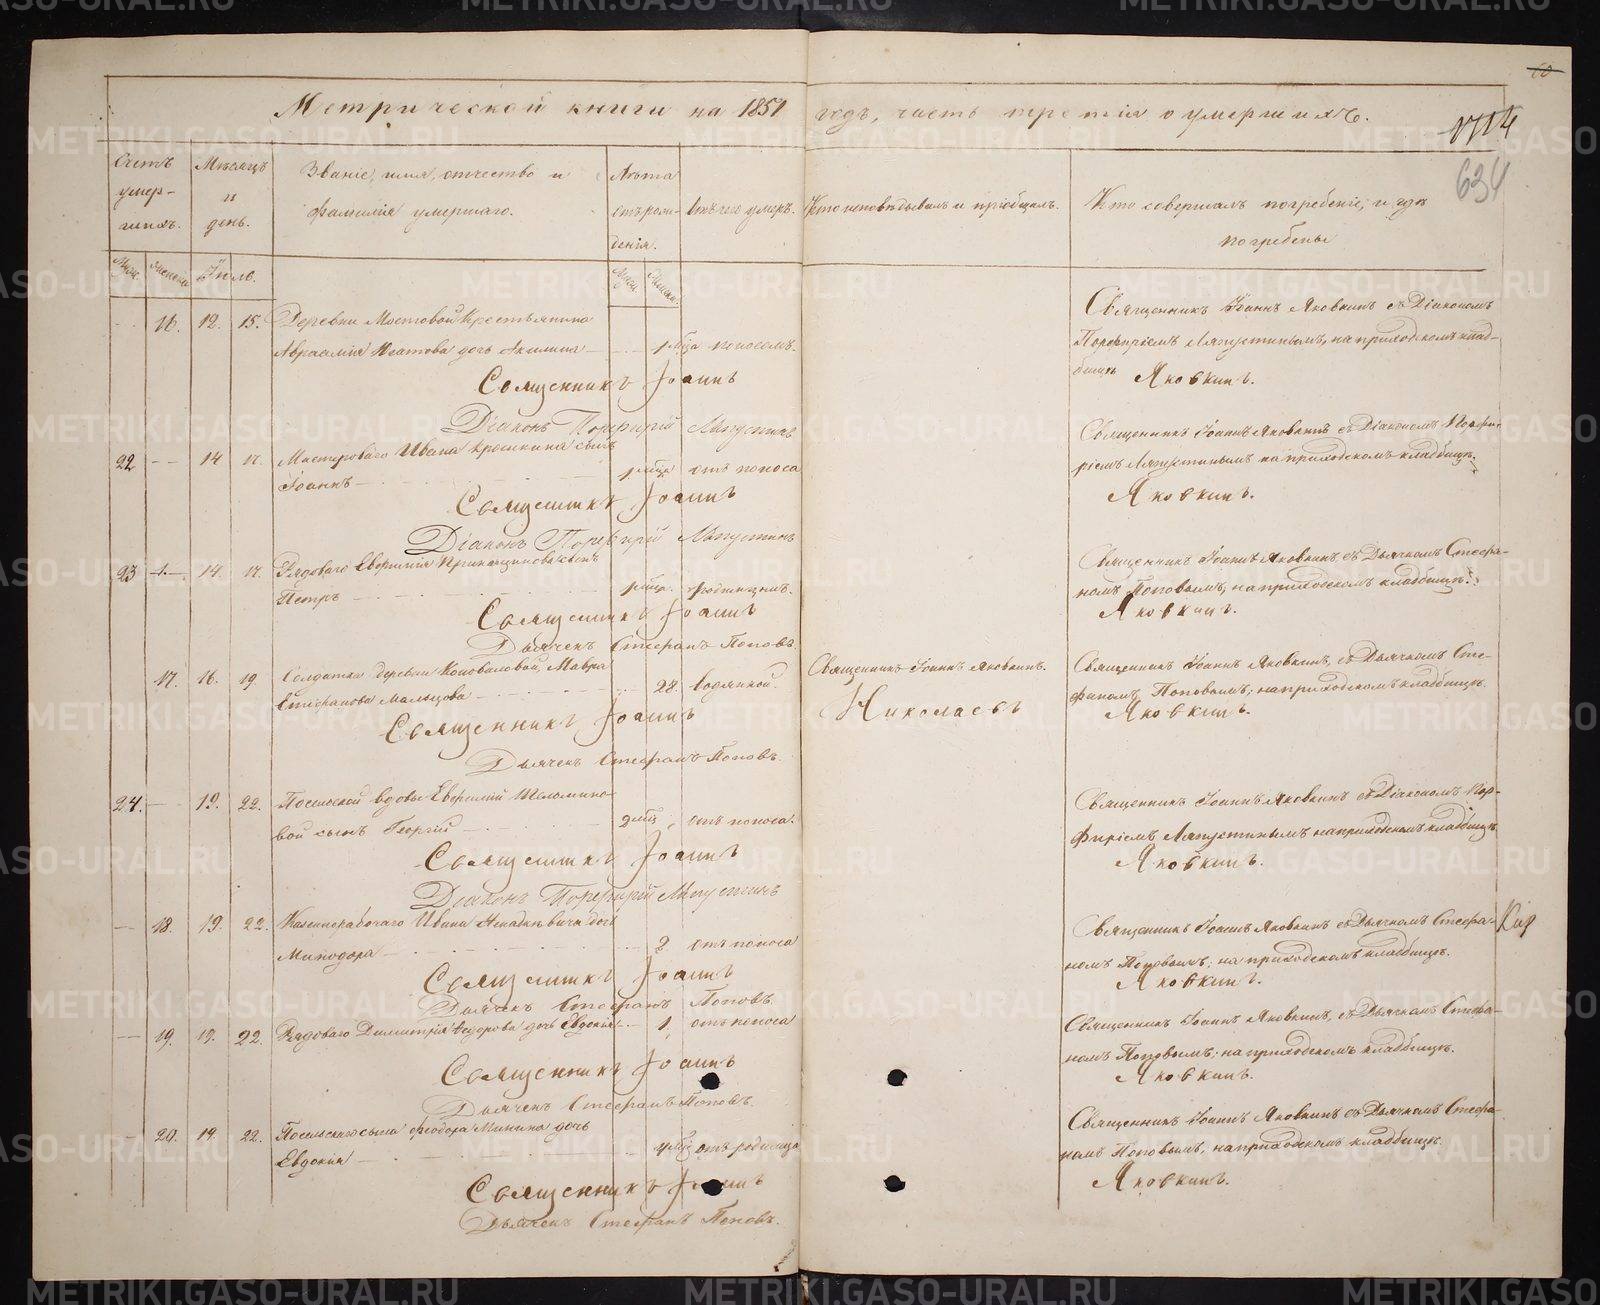 60
Метрической книги на 1851 годъ, часть третія о умершихъ.
634
Счетъ умер-шихъ.
Мѣсяцъ и день.
Званіе, имя, отчество и фамилія умершаго.
Лѣта отъ рожденія.
Отъ чего умеръ.
Кто исповѣдывалъ и пріобщалъ.
Кто совершалъ погребеніе, и гдѣ погребены
Іюль.
16. 12. 15. Деревни Мостовой Крестьянина
дочь Акилина 1 мца поносомъ.
Священникъ Іоаннъ Яковкинъ съ Діакономъ
Порфиріемъ Лапустинымъ, на приходскомъ клад-
бищѣ
Священникъ Іоаннъ Яковкинъ.
Діаконъ Порфирій Лапустинъ
22 14 17. Мастероваго Ивана сынъ
Іоаннъ отъ поноса
Священникъ Іоаннъ Яковкинъ съ Діакономъ Порфи-
ріемъ Лапустинымъ на приходскомъ кладбищѣ.
Священникъ Іоаннъ Яковкинъ.
Діаконъ Порфирій Лапустинъ
23 14. 17. Рядоваго Евфимія сынъ
Петръ родимцемъ.
Священникъ Іоаннъ Яковкинъ, съ Дьячкомъ Стефа-
номъ Поповымъ, на приходскомъ кладбищѣ.
Священникъ Іоаннъ Яковкинъ.
Дьячекъ Стефанъ Поповъ.
17. 16. 19. Солдатка деревни Коноваловой, Мавра
Стефанова Мальцова 28 водянкой.
Священникъ Іоаннъ Яковкинъ.
Николаевъ
Священникъ Іоаннъ Яковкинъ, съ Дьячкомъ Сте-
фаномъ Поповымъ; на приходскомъ кладбищѣ.
Священникъ Іоаннъ Яковкинъ.
Дьячекъ Стефанъ Поповъ.
24. 19. 22. вдовы Евфиміи
вой сынъ Георгій 2 мцъ отъ поноса.
Священникъ Іоаннъ Яковкинъ съ Діакономъ Пор-
фиріемъ Лапустинымъ на приходскомъ кладбищѣ
Священникъ Іоаннъ Яковкинъ.
Діаконъ Порфирій Лапустинъ
18. 19. 22. Ивана дочь
Минодора 2 отъ поноса
Священникъ Іоаннъ Яковкинъ съ Дьячкомъ Стефа-
номъ Поповымъ; на приходскомъ кладбищѣ.
Священникъ Іоаннъ Яковкинъ.
Дьячекъ Стефанъ Поповъ.
19. 19. 22. Рядоваго Димитрія Федорова дочь Евдокія 1 отъ поноса
Священникъ Іоаннъ Яковкинъ, съ Дьячкомъ Стефа-
номъ Поповымъ; на приходскомъ кладбищѣ.
Священникъ Іоаннъ Яковкинъ.
Дьячекъ Стефанъ Поповъ.
20. 19. 22. Ѳеодора Минина дочь
Евдокія отъ родимца
Священникъ Іоаннъ Яковкинъ съ Дьячкомъ Стефа-
номъ Поповымъ, на приходскомъ кладбищѣ.
Священникъ Іоаннъ Яковкинъ.
Дьячекъ Стефанъ Поповъ.
METRIKI.GASO-URAL.RU